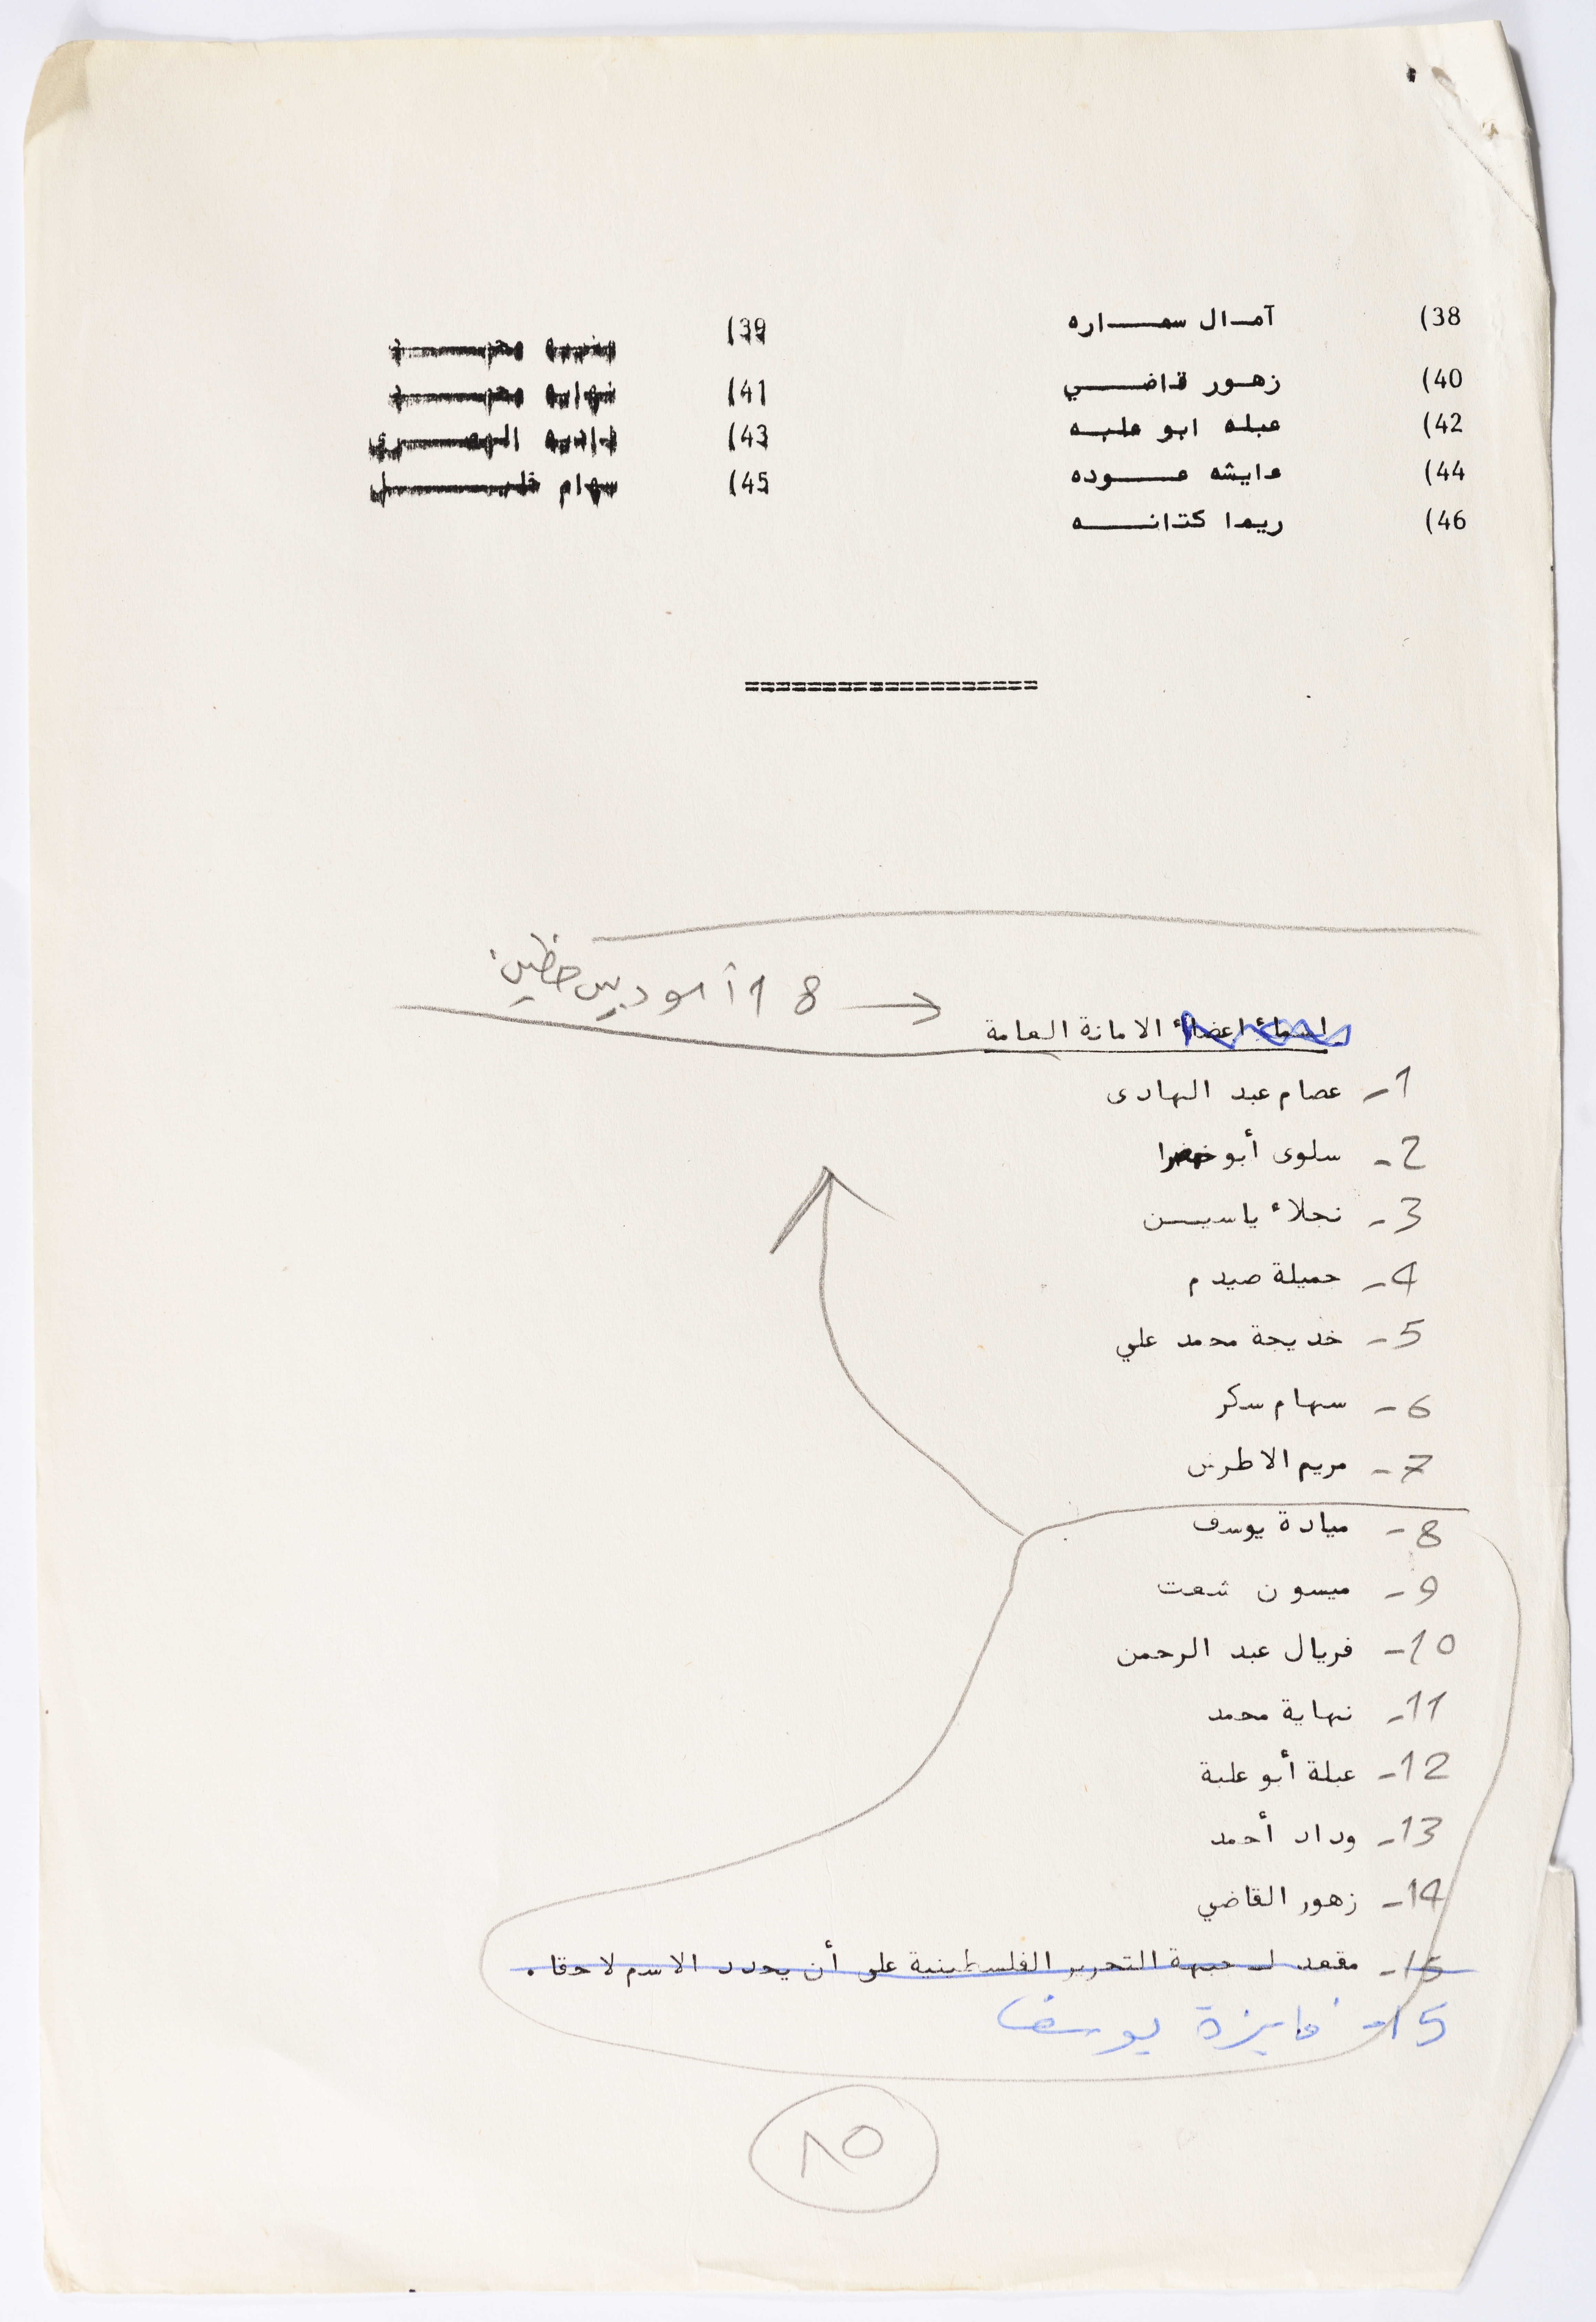 38) آمـال سمـــاره 39)
40) زهـور قـاضـــي 41) نهايه محمــــد
42) عبله ابو علبــه 43) ناديه المصـــــرى
44) عايشه عــــوده 45) سهام خليـــــــل
46) ريما كتانــــه
===================
18 أ ←
اسماء اعضاء الامانة العامة
1- عصام عبد الهادى
2- سلوى أبو خضرا
3- نجلاء ياسيــن
4- جميلة صيدم
5- خديجة محمد علي
6- سهام سكر
7- مريم الاطرش
8- ميادة يوسف
9- ميسون شعت
10- فريال عبد الرحمن
11- نهاية محمد
12- عبلة أبو علبة
13- وداد أحمد
14- زهور القاضي
15- مقعد لـ جبهة التحرير الفلسطينية على أن يحدد الاسم لاحقا .
15- فايزة يوسف